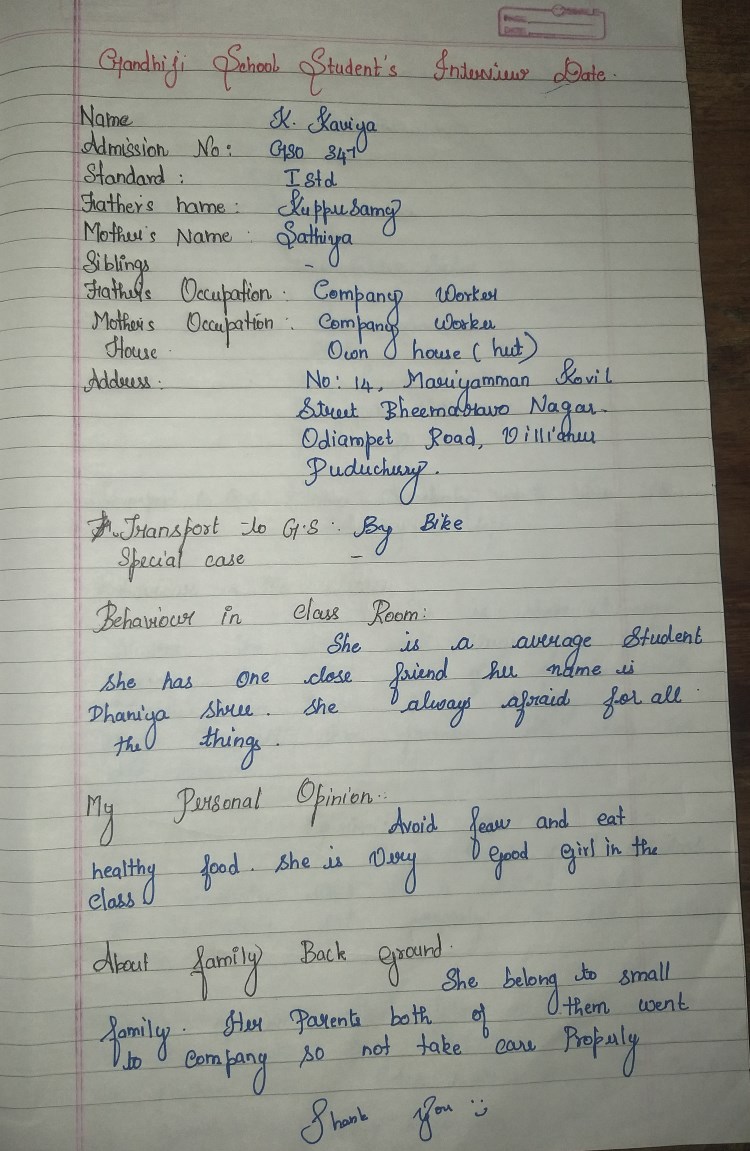 Gandhiji School Student's Interview Date.
Name K. Kaviya
Admission No: GSO 347
Standard: I Std
Father's name: Kuppusamy
Mother's Name: Sathiya
Siblings -
Father's Occupation: Company Worker
Mother's Occupation: Company worker
House Own house (hut)
Address: No: 14, Mariyamman Kovil
Street Bheemarao Nagar.
Odiampet Road, Villi
Puducherry.
Transport to G.S: By Bike
Special case -
Behaviour in Class Room:
She is a average Student
She has one close friend her name is
Dhaniya shree. She always afraid for all
the things.
My Personal Opinion:
Avoid fear and eat
healthy food. She is Very good girl in the
class
About family Back ground.
She belong to small
family. Her Parents both of them went
to Company so not take care Properly
Thank You